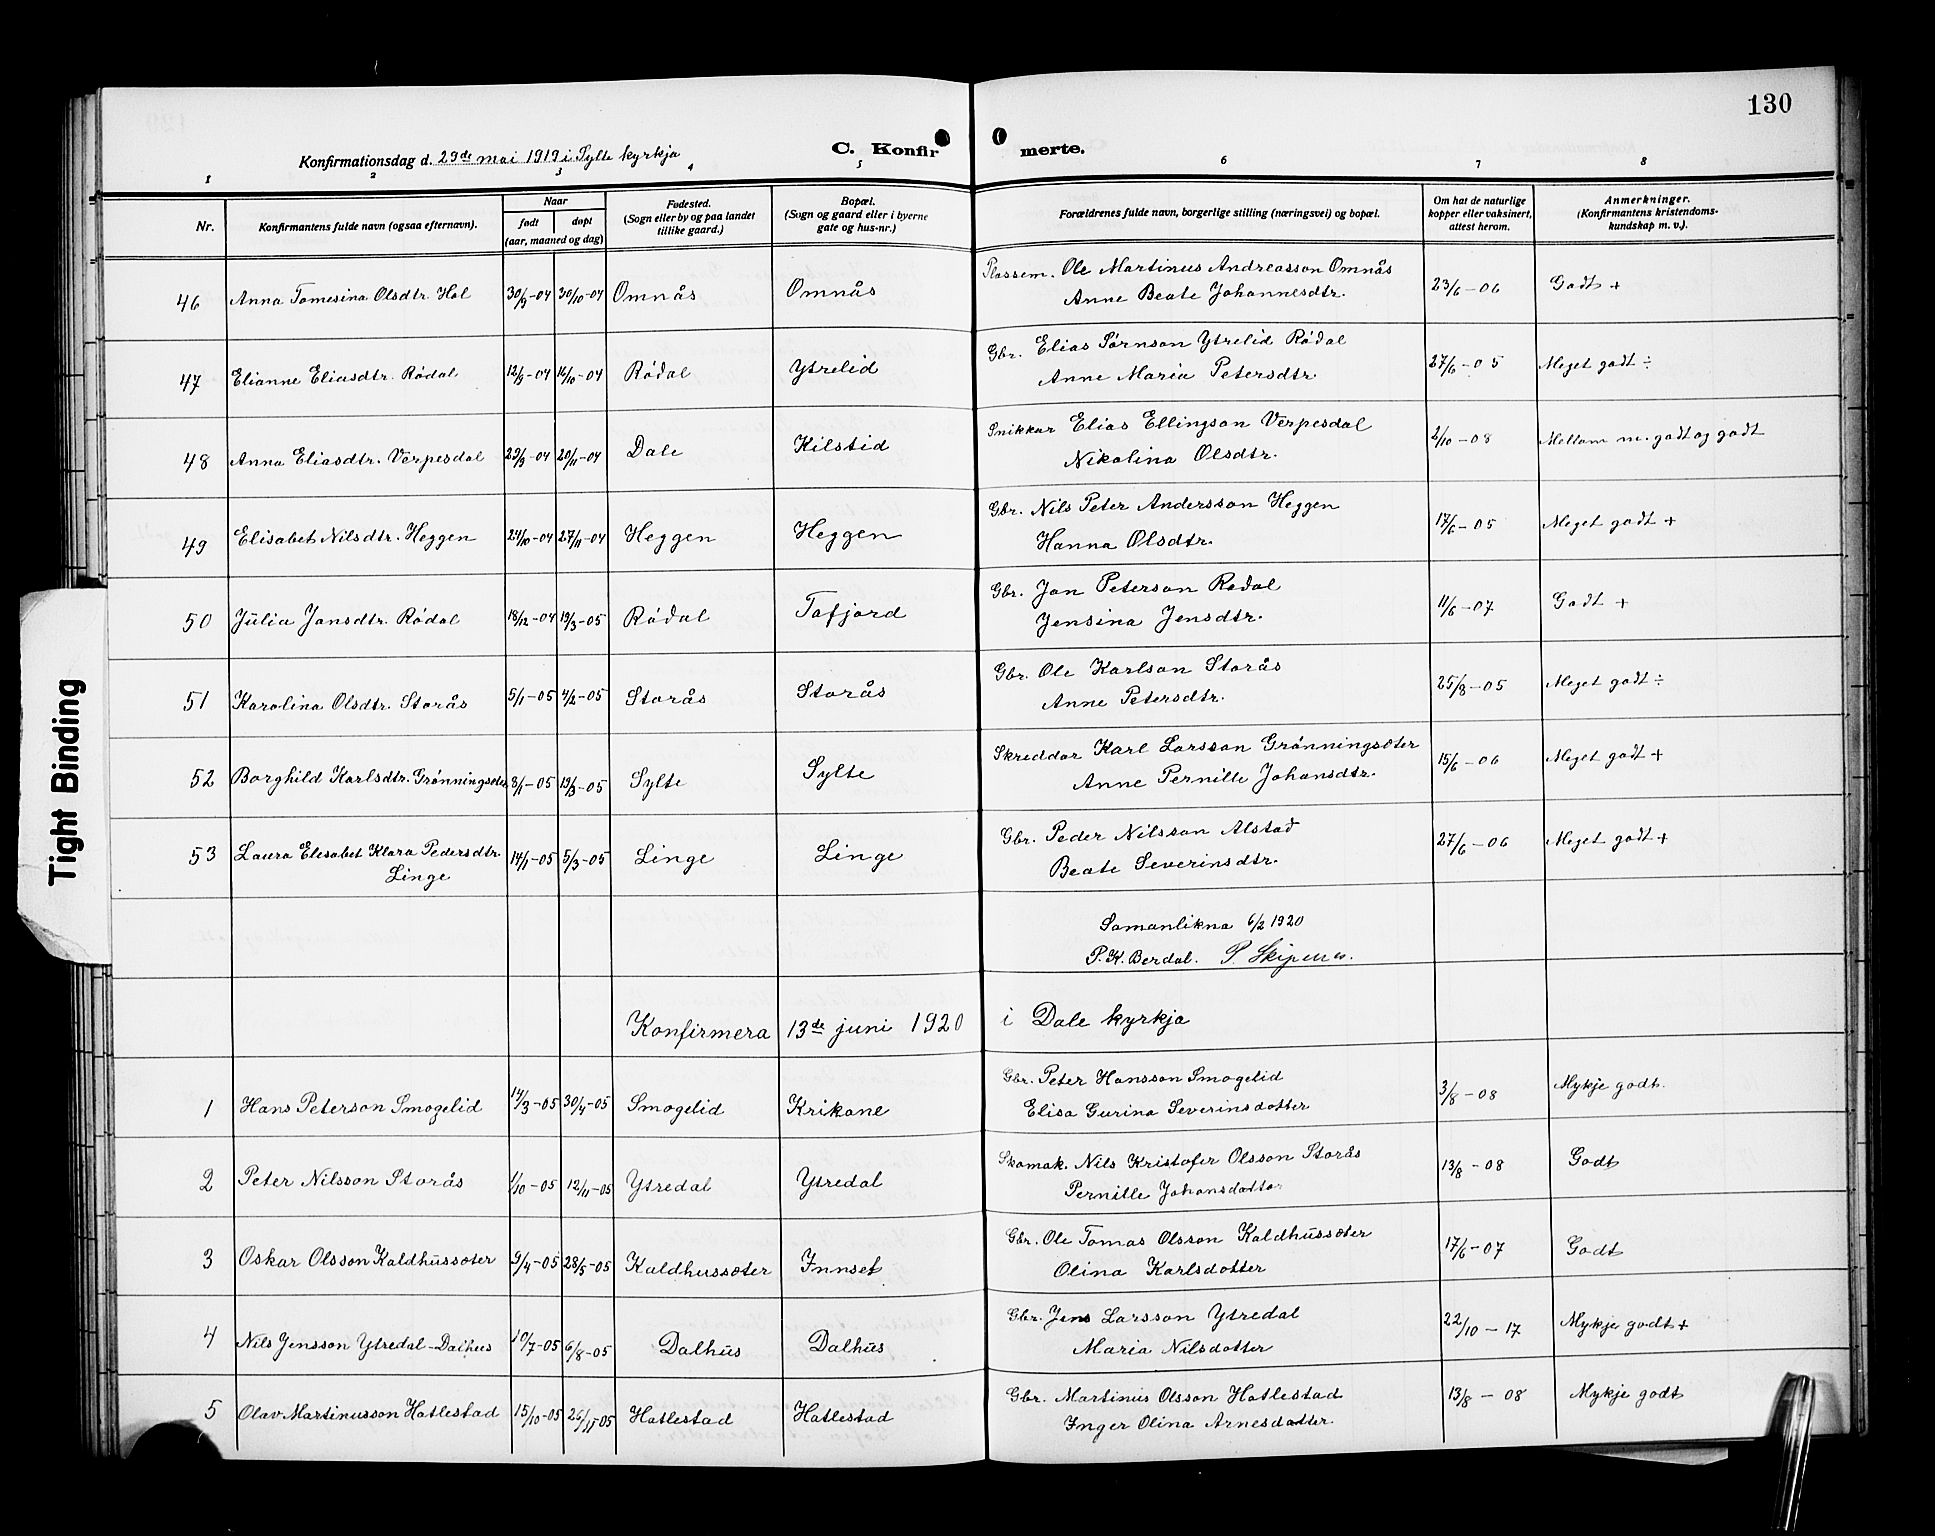 130
Konfirmationsdag d. 29de mai 1919 i Sylte kyrkja
C. Konfirmerte.
1 2 3 4 5 6 7 8
Nr. Konfirmantens fulde navn (ogsaa efternavn). Naar født døpt (aar, maaned og dag) Fødested. (Sogn eller by og paa landet tillike gaard.) Bopæl. (Sogn og gaard eller i byerne gate og hus-nr.) Forældrenes fulde navn, borgerlige stilling (næringsvei) og bopæl. Om hat de naturlige kopper eller vaksinert, attest herom. Anmerkninger. (Konfirmantens kristendoms-kundskap m. v.).
46 Anna Tomesina Olsdtr. Hol 30/9-04 30/10-04 Omnås Omnås Plassem. Ole Martinus Andreasson Omnås 23/6-06 Godt +
Anne Beate Johannesdtr.
47 Elianne Eliasdtr. Rødal 12/9-04 16/10-04 Rødal Ytrelid Gbr. Elias Sørnson Ytrelid Rødal 27/6-05 Meget godt ÷
Anne Maria Petersdtr.
48 Anna Eliasdtr. Verpesdal 29/9-04 20/11-04 Dale Kilstid Snikkar Elias Ellingson Verpesdal 2/10-08 Mellom m. godt og godt
Nikolina Olsdtr.
49 Elisabet Nilsdtr. Heggen 24/10-04 27/11-04 Heggen Heggen Gbr. Nils Peter Andersson Heggen 17/6-05 Meget godt +
Hanna Olsdtr.
50 Julia Jonsdtr. Rødal 18/12-04 19/3-05 Rødal Tafjord Gbr. Jon Peterson Rødal 11/6-07 Godt +
Jensina Jensdtr.
51 Karolina Olsdtr. Storås 5/1-05 4/2-05 Storås Storås Gbr. Ole Karlson Storås 25/8-05 Meget godt ÷
Anne Petersdtr.
52 Borghild Karlsdtr. Grønningsæter 8/1-05 19/3-05 Sylte Sylte Skreddar Karl Larsson Grønningsæter 15/6-06 Meget godt +
Anne Pernille Johansdtr.
53 Laura Elisabet Klara Pedersdtr. 14/1-05 5/3-05 Linge Linge Gbr. Peder Nilsson Alstad 27/6-06 Meget godt +
Linge Beate Severinsdtr.
Samanlikna 6/2 1920
P. K. Berdal. P. Skipenes.
Konfirmera 13de juni 1920 i Dale kyrkja
1 Hans Peterson Smogelid 14/3-05 30/4-05 Smogelid Krikane Gbr. Peter Hansson Smogelid 3/8-08 Mykje godt.
Elisa Gurina Severinsdotter
2 Peter Nilsson Storås 1/10-05 12/11-05 Ytredal Ytredal Skomak. Nils Kristofer Olsson Storås 13/8-08 Godt
Pernille Johansdotter
3 Oskar Olsson Kaldhussæter 9/4-05 28/5-05 Kaldhussæter Innset Gbr. Ole Tomas Olsson Kaldhussæter 17/6-07 Godt
Olina Karlsdotter
4 Nils Jensson Ytredal-Dalhus 10/7-05 6/8-05 Dalhus Dalhus Gbr. Jens Larsson Ytredal 22/10-17 Mykje godt +
Maria Nilsdotter
5 Olav Martinusson Hatlestad 15/10-05 26/11-05 Hatlestad Hatlestad Gbr. Martinus Olsson Hatlestad 13/8-08 Mykje godt
Inger Olina Arnesdotter
Tight Binding